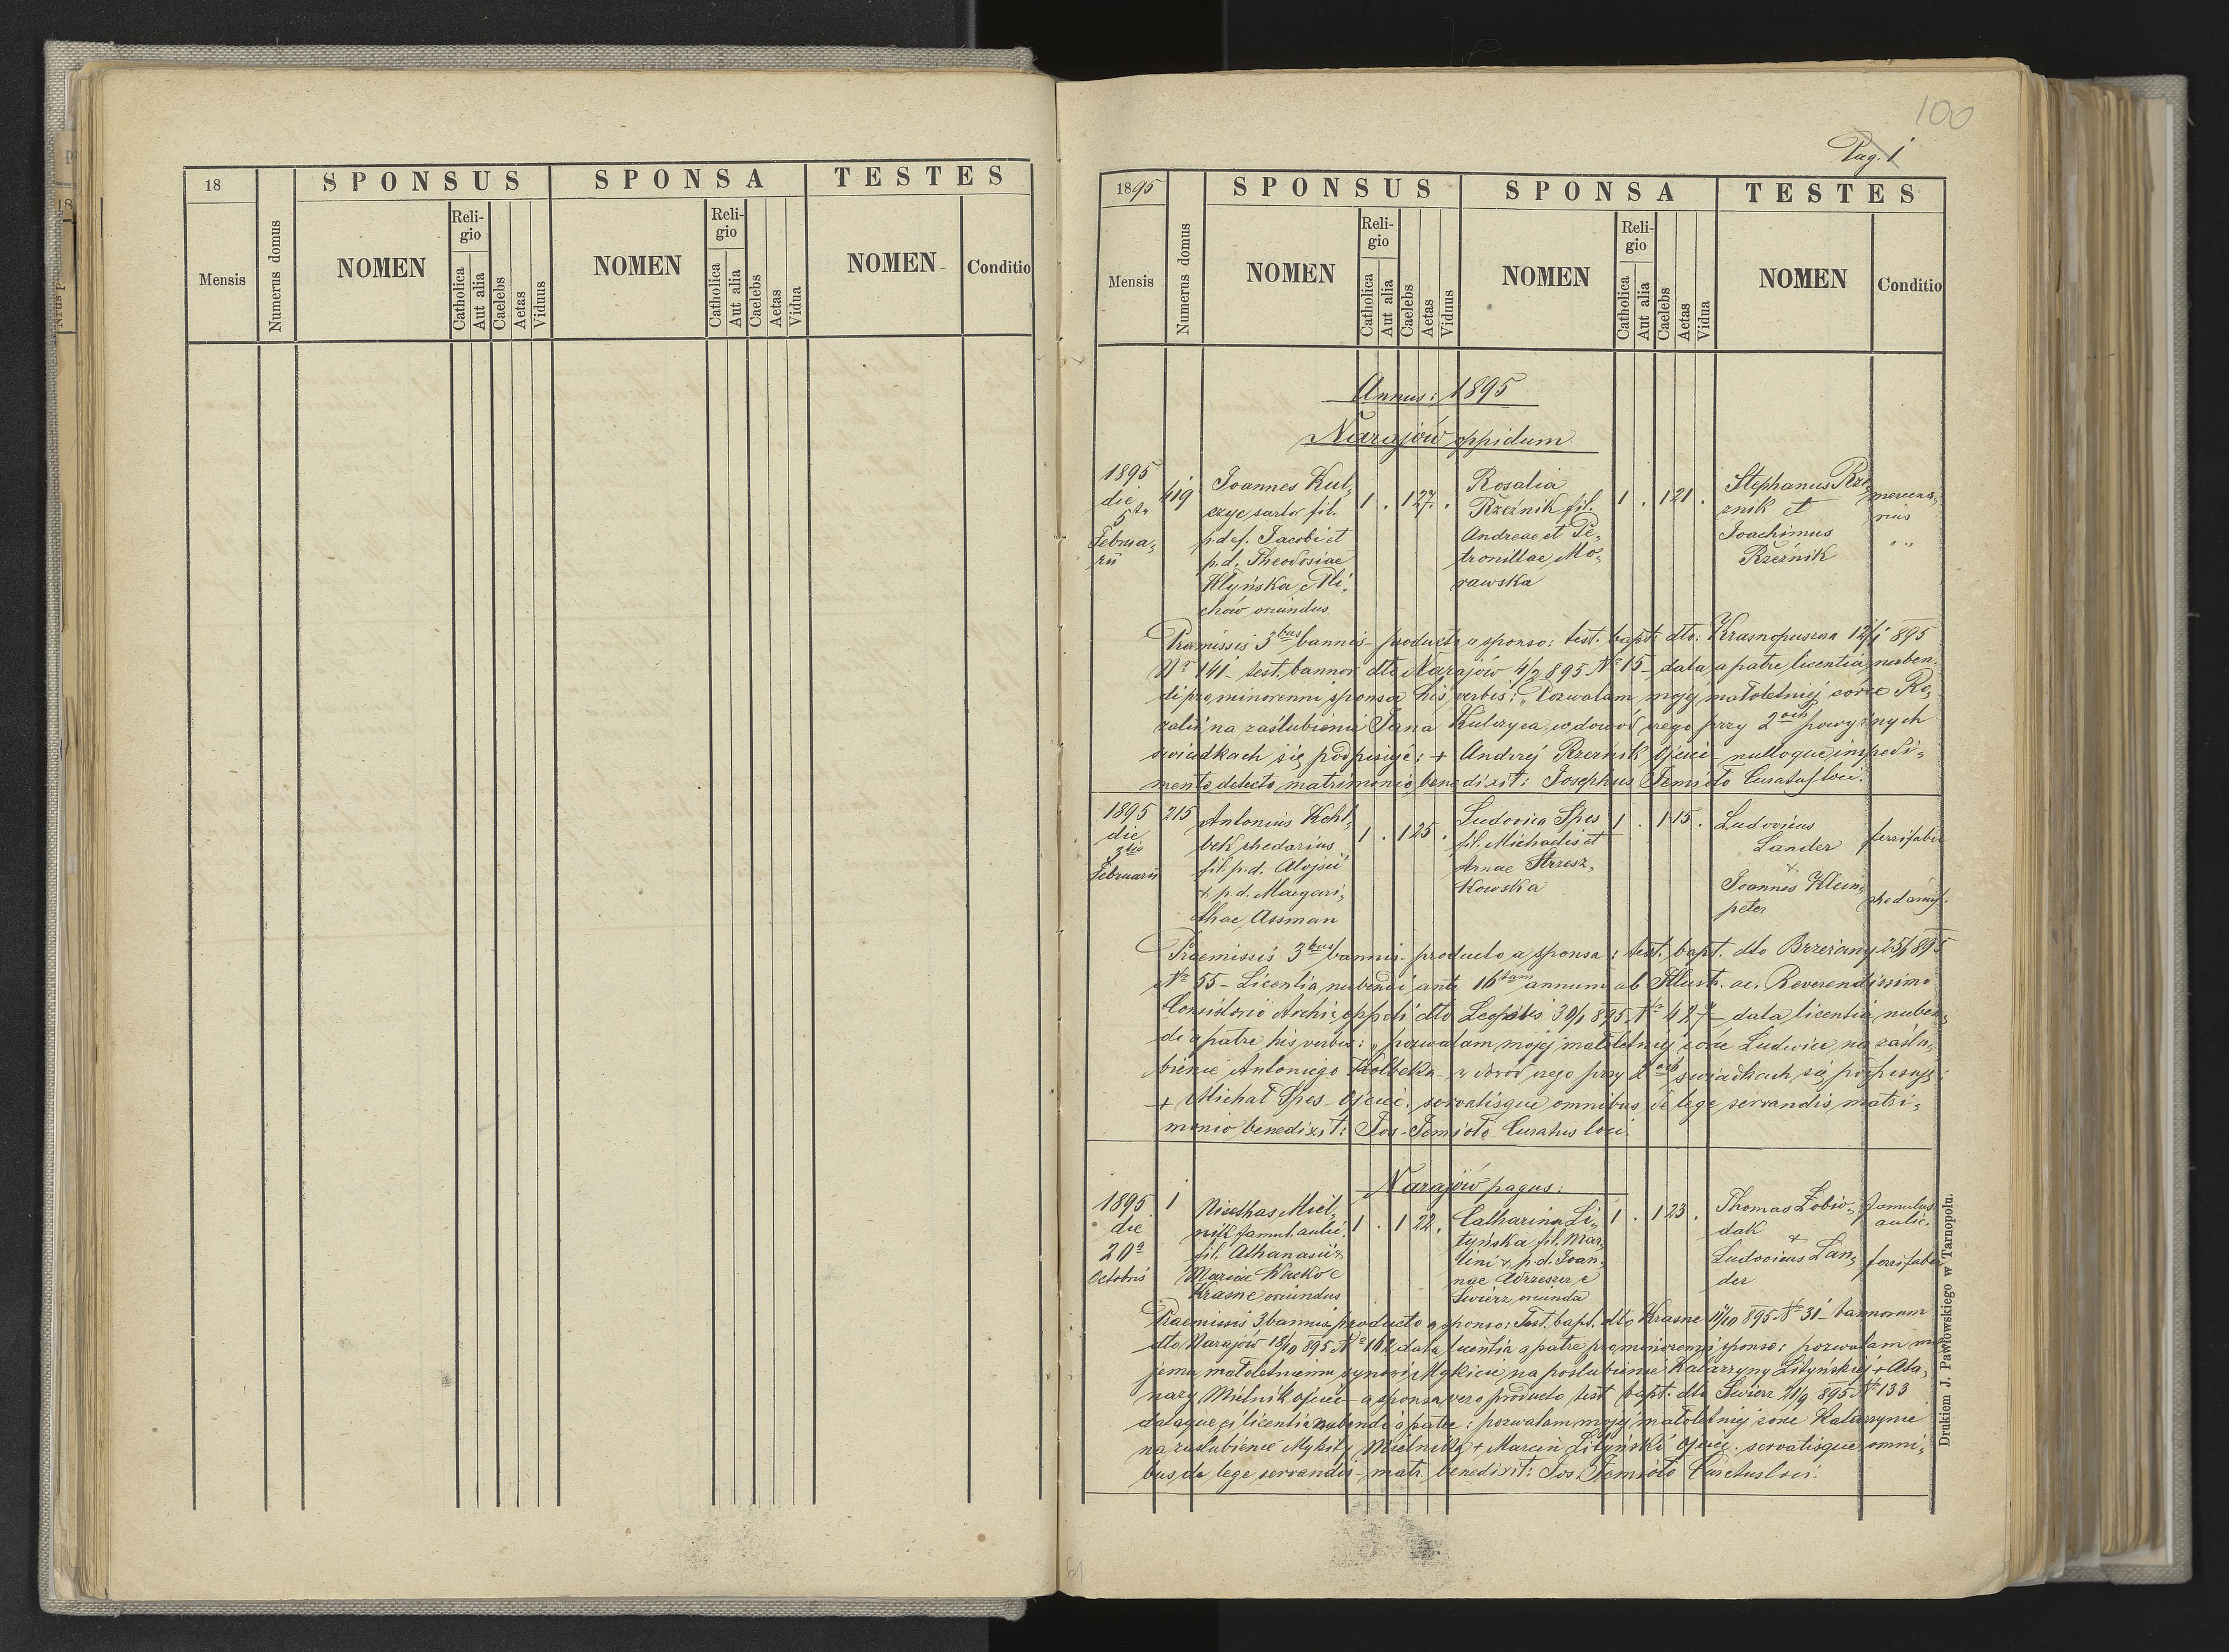 18
SPONSUS
SPONSA
TESTES
Mensis
Numerus domus
NOMEN
Reli-
gio
Catholica
Aut alia
Caelebs
Aetas
Viduus
NOMEN
Reli-
gio
Catholica
Aut alia
Caelebs
Aetas
Vidua
NOMEN
Conditio
100
Pag. 1
1895
SPONSUS
SPONSA
TESTES
Mensis
Numerus domus
NOMEN
Reli-
gio
Catholica
Aut alia
Caelebs
Aetas
Viduus
NOMEN
Reli-
gio
Catholica
Aut alia
Caelebs
Aetas
Vidua
NOMEN
Conditio
Annus: 1895
Narajów oppidum
1895
die
5ta
Februa-
rii
419
Joannes Kul-
czyc sartor fil.
p.def. Jacobi et
p.d. Theodosiae
Hłyńska Mi-
chów oriundus
1 . 1 27 .
Rosalia
Rzeźnik fil.
Andreae et Pe-
tronillae Mo-
rawska
1 . 1 21 .
Stephanus Rze-
znik et
Joachimus
Rzeźnik
mercena-
rius
" "
Praemissis 3bus bannis producto a sponso: test. bapt. dto: Krasnopuszcza 12/1 895
No 141 - test. bannor. dto Narajów 4/2 895 No 15 - data a patre licentia nuben-
di pro minorenni sponsa his verbis: "Pozwalam mojej małoletniej córce Ro-
zalii na zaślubienie Jana Kulczyca, w dowód czego przy 2och powyższych
świadkach się podpisuję: + Andrzej Rzeźnik ojciec - nulloque impedi-
mento detecto matrimonio benedixit: Josephus Femioło Curatus loci.
1895
die
3tio
Februarii
215
Antonius Kohl-
bek rhedarius
fil. p.d. Alojsii
& p.d. Margari-
thae Assman
1 . 1 25 .
Ludovica Spes
fil. Michaelis et
Annae Strzesz-
kowska
1 . 1 15 .
Ludovicus
Lander
&
Joannes Klein-
peter
ferrifaber
rhedarius
Praemissis 3bus bannis - producto a sponsa: test. bapt. dto Brzeżany 25/1 895
No 55 - Licentia nubendi ante 16tum annum ab Illustr. ac. Reverendissimo
Consistorio Archie-ppali dto Leopolis 30/1 895 No 427 - data licentia nuben-
di a patre his verbis: "pozwalam mojej małoletniej córce Ludwice na zaślu-
bienie Antoniego Kolbeka - w dowód czego przy 2och świadkach się podpisuję:
+ Michał Spes - ojciec. servatisque omnibus de lege servandis matri-
monio benedixit: Jos. Femioło Curatus loci.
Narajów pagus:
1895
die
20a
Octobris
1
Nicethas Miel-
nik famul. aulic.
fil. Athanasii &
Mariae Wacko e
Krasne oriundus
1 . 1 22 .
Catharina Li-
tyńska fil. Mar-
tini & p.d. Joan-
nae Wrzeszcz e
Swierz oriunda
1 . 1 23 .
Thomas Łobio-
dak
&
Ludovicus Lan-
der
famulus
aulic.
ferrifaber
Praemissis 3 bannis producto a sponso: Test. bapt. dto Krasne 11/10 895 No 31 - bannorum
dto Narajów 18/10 895 No 162 data licentia a patre pro minorenni sponso: pozwalam mo-
jemu małoletniemu synowi Mykicie na poślubienie Katarzyny Lityńskiej + Ata-
nazy Mielnik ojciec - a sponsa vero producto test. bapt. dto Swierz 21/9 895 No 133
dataque ei licentia nubendi a patre: pozwalam mojej małoletniej córce Katarzynie
na zaślubienie Mykity Mielnika + Marcin Lityński ojciec. servatisque omni-
bus de lege servandis - matr. benedixit: Jos. Femioło Curatus loci.
Drukiem J. Pawłowskiego w Tarnopolu.